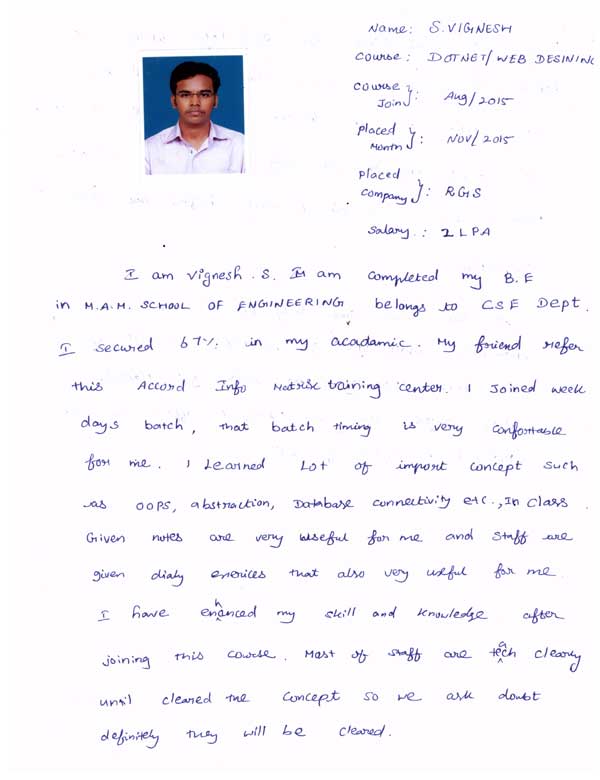 Name: S.VIGNESH
Course: DOTNET/ WEB DESINING
Course Join : Aug/2015
Placed Month : NOV/2015
Placed Company : RGS
Salary : 2 LPA
I am Vignesh .S. I am completed my B.E
in M.A.M. SCHOOL OF ENGINEERING belongs to CSE Dept.
I secured 67%. in my acadamic. My friend refer
this Accord Info Matrix training center. I Joined week
days batch, that batch timing is very confortable
for me. I Learned Lot of import concept such
as OOPS, abstraction, Database connectivity etc., In class
Given notes are very useful for me and staff are
given dialy that also very useful for me
I have enhanced my skill and knowledge after
joining this course. Most of staff are teach clearly
until cleared the concept so we ask doubt
definitely they will be cleared.